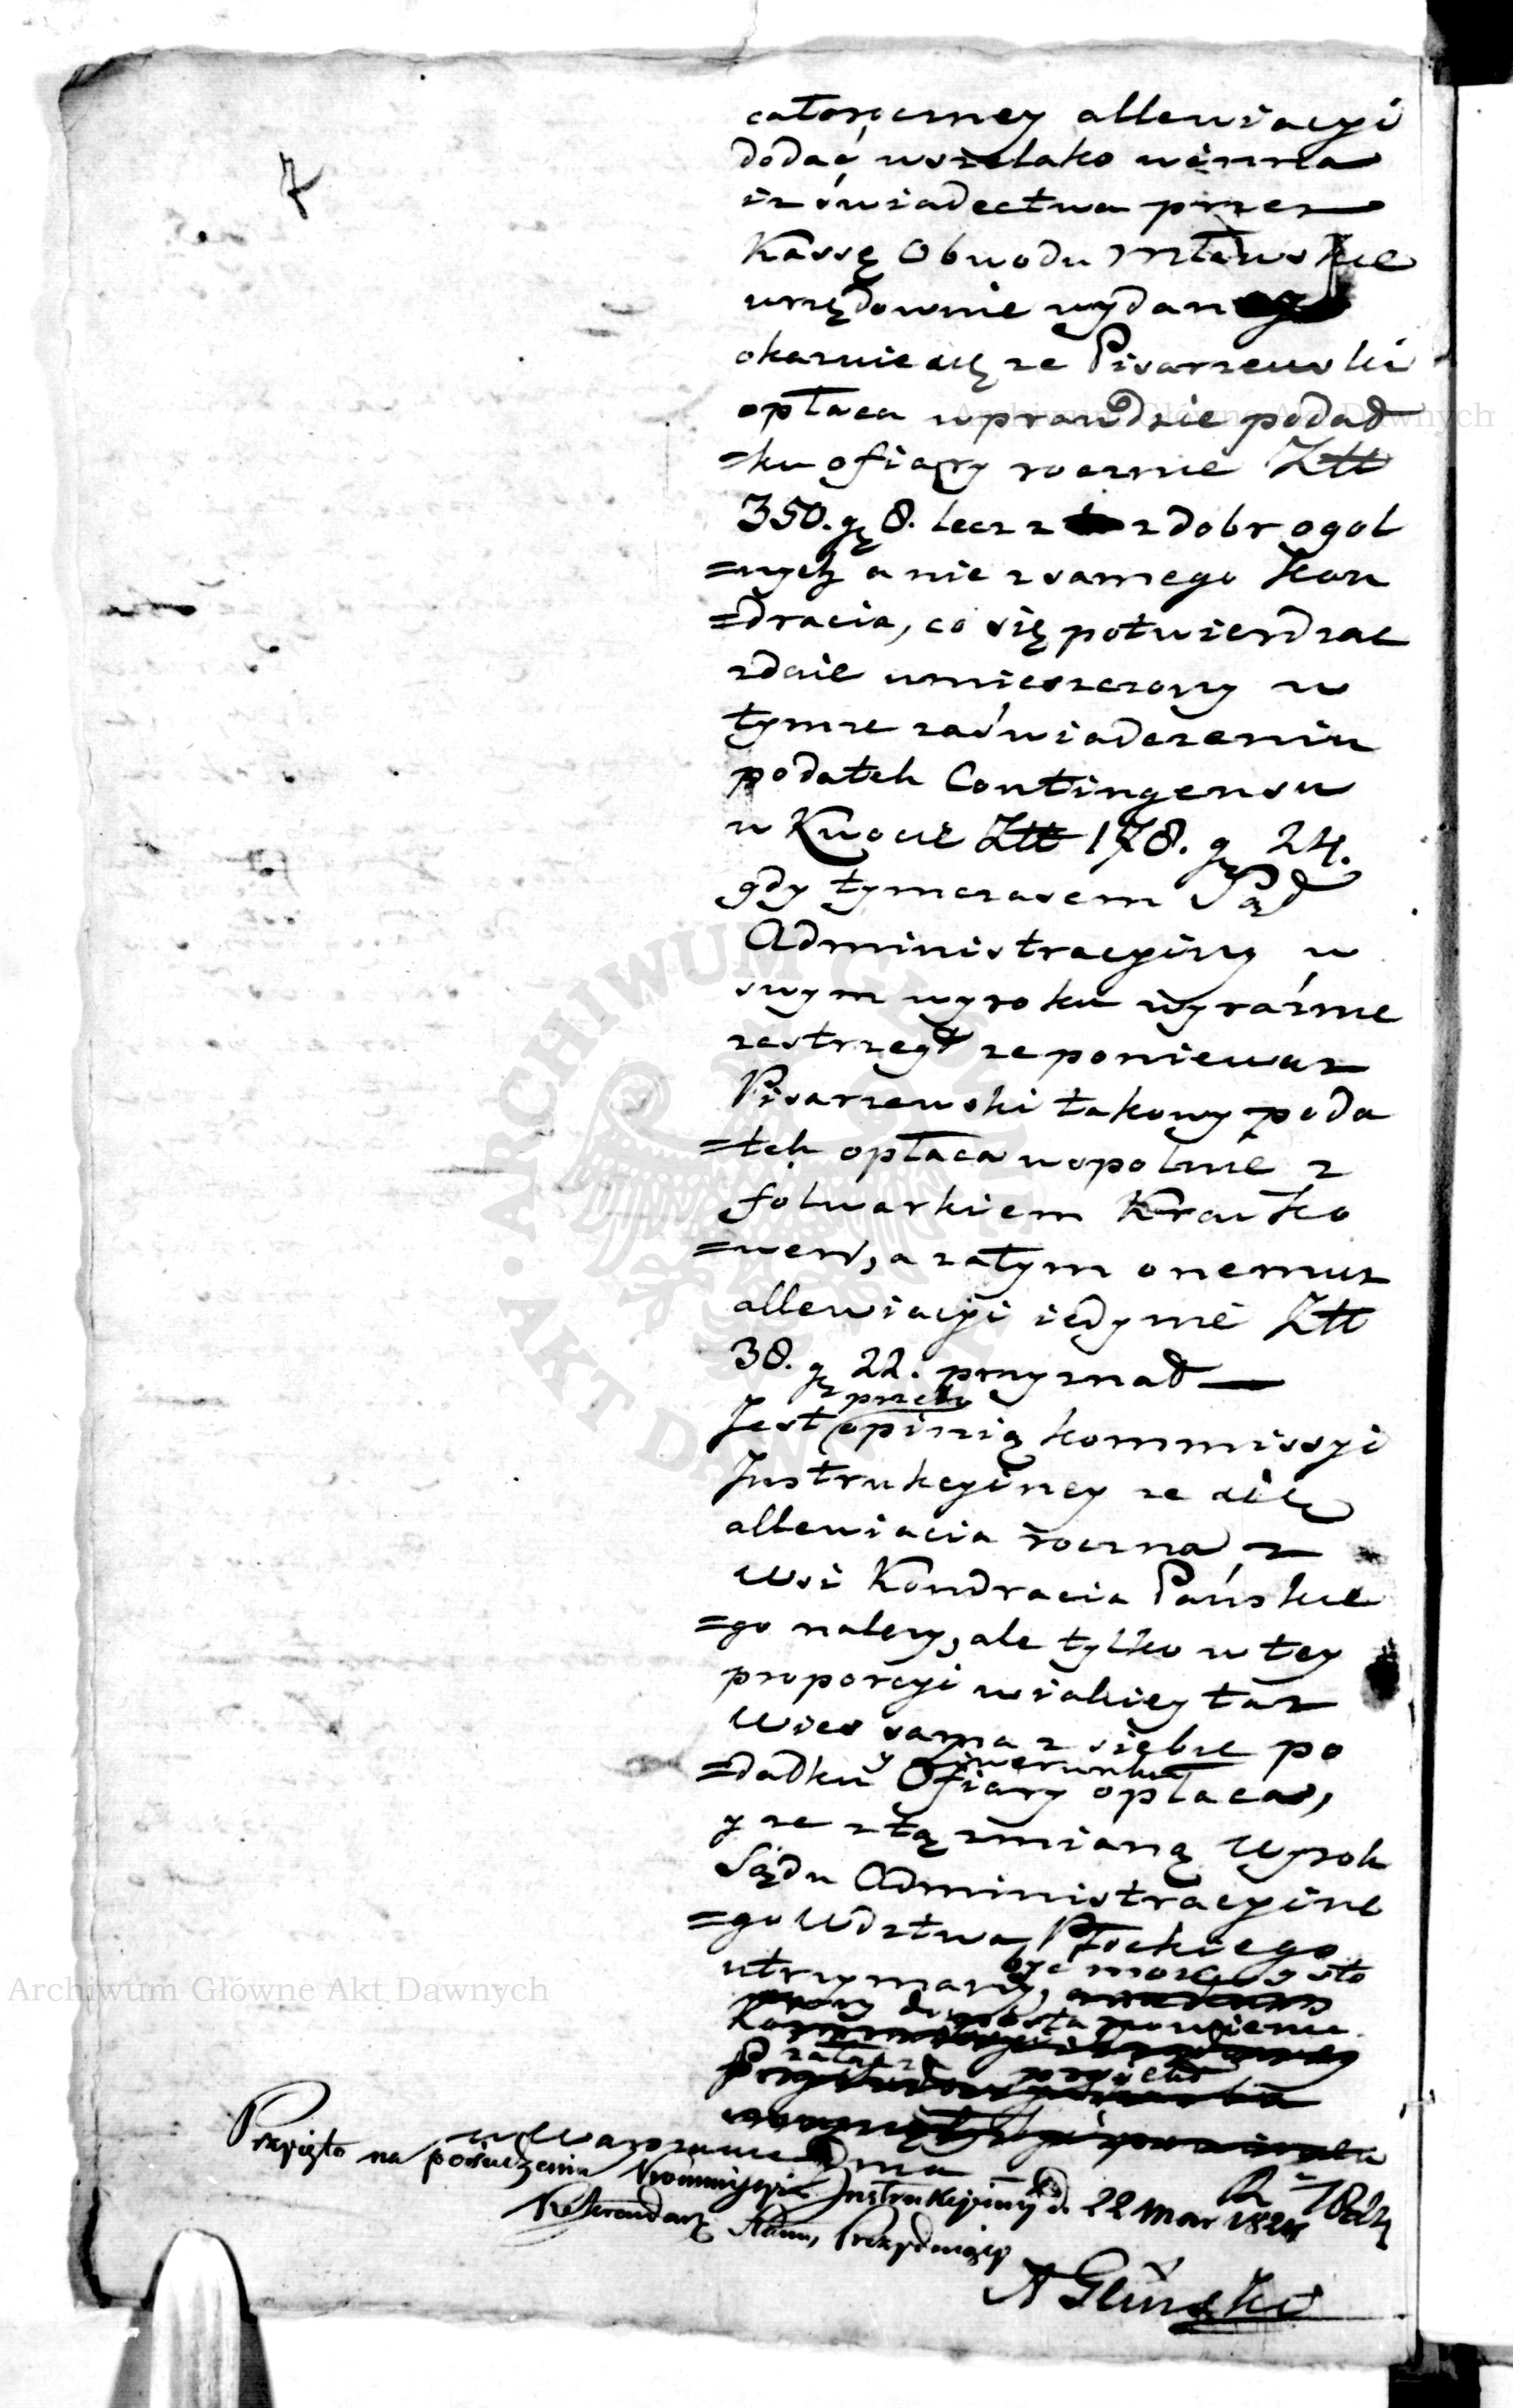 7
całorocznej allewiacyi
dodać wszelako winna
iz świadectwa przez
Kassę Obwodu Mławskie
urzędownie wydanego
okazuie się ze Pisarzewski
opłaca wprawdzie podad
=ku ofiary rocznie Złł
350. gr 8. lecz z dobr ogol
=nych a nie z samego Kon
=dracia, co się potwierdzac
zdaie umieszczony w
tymze zaświadczeniu
podatek Contingensu
w Kwocie Złł 178. gr 24.
gdy tymczasem Sąd
Administracyiny w
swym wyroku wyraźnie
zastrzegł ze poniewaz
Pisarzewski takowy poda
=tek opłaca wspolnie z
folwarkiem Krauko
=wem, a zatym onemuz
allewiacyi iedynie Złł
38. gr 22. przyznał —
przeto
Jest opinią kommissyi
Instrukcyiney ze się
allewiacia roczna z
wsi Kondracia Pańskie
=go nalezy, ale tylko w tey
proporcyi w iakiey taz
wies sama z siebie po
=dadku Ofiary opłaca,
y ze z tą zmianą Wyrok
Sądu Administracyine
=go Wdztwa Płockiego
być moze
utrzymany,
w Warszawie dnia 1824
Przyięto na posiedzeniu Kommissyi Instrukcyiney d. 22 Mar 1824
Referendarz Stanu, Prezyduiący
A Gliński
Archiwum Główne Akt Dawnych
Archiwum Główne Akt Dawnych
ARCHIWUM GŁÓWNE AKT DAWNYCH